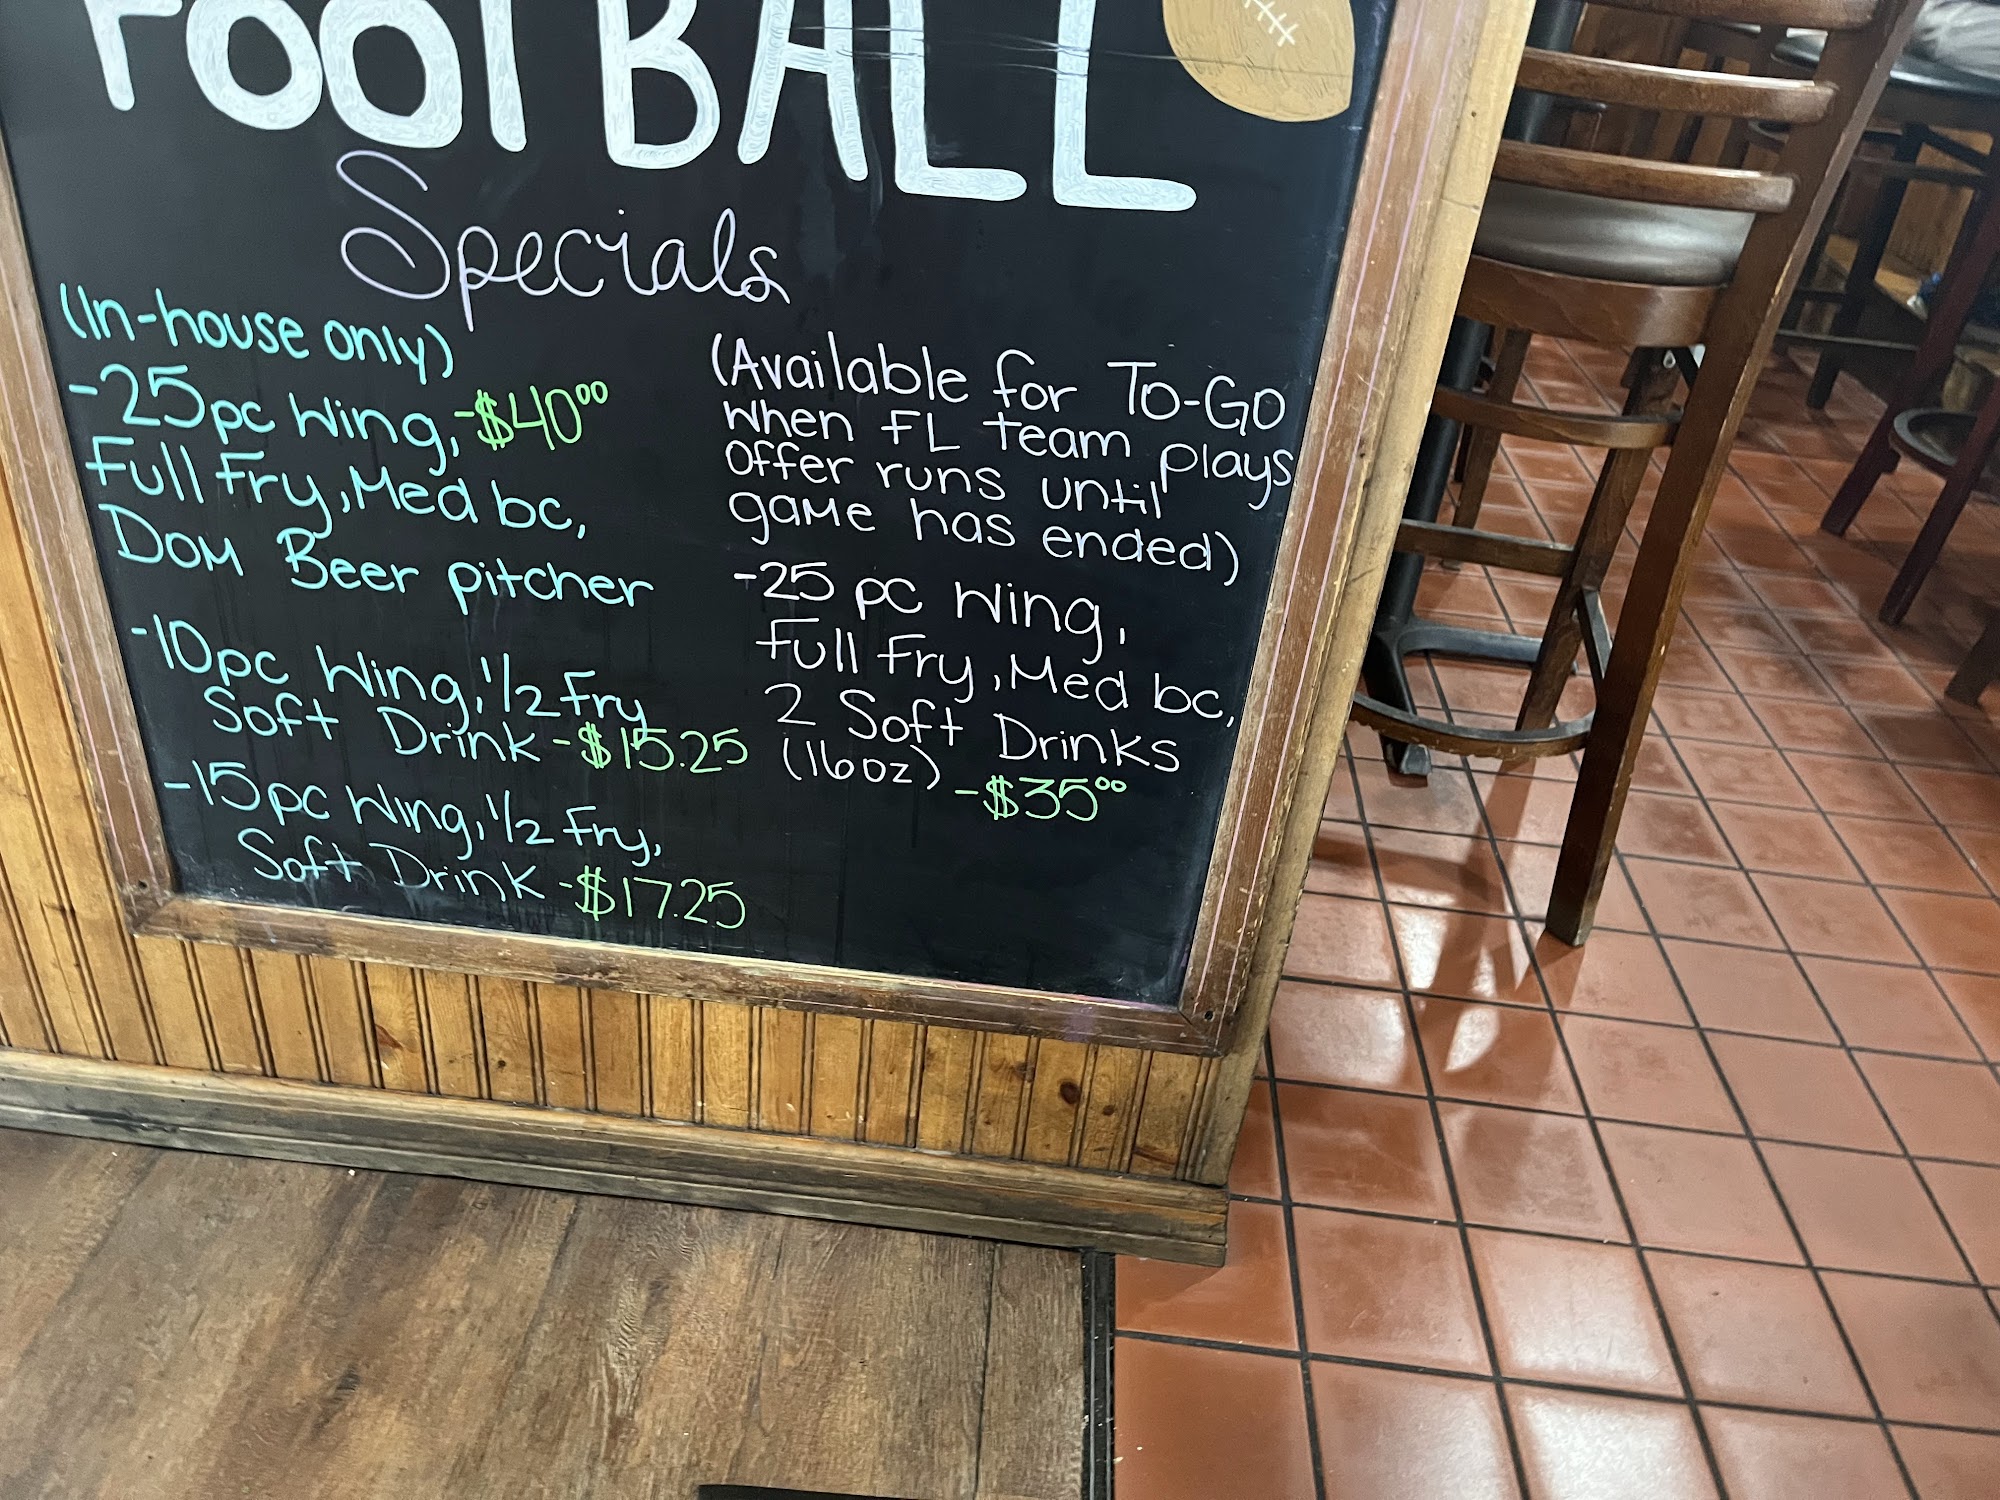 FOOTBALL
Specials
(In-house only)
-25pc Wing, -$40⁰⁰
Full Fry, Med bc,
Dom Beer pitcher
-10pc Wing, 1/2 Fry
Soft Drink -$15.25
-15pc Wing, 1/2 Fry,
Soft Drink -$17.25
(Available for To-GO
when FL team plays
offer runs until
game has ended)
-25 pc Wing,
Full Fry, Med bc,
2 Soft Drinks
(16oz) -$35⁰⁰